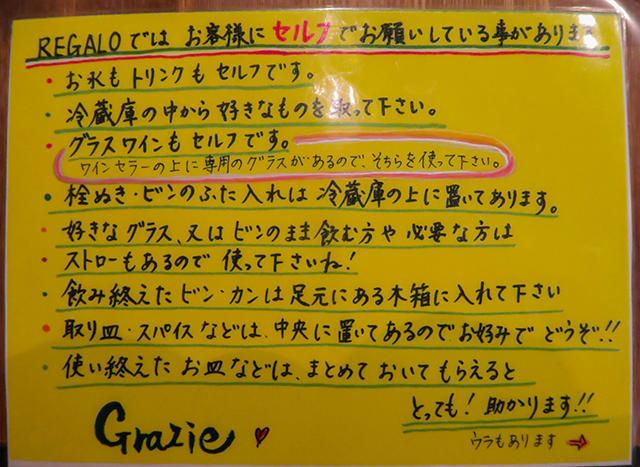 REGALOでは お客様に セルフでお願いしている事があります
・お水もドリンクもセルフです。
・冷蔵庫の中から好きなものを取って下さい。
・グラスワインもセルフです。
ワインセラーの上に専用のグラスがあるので、そちらを使って下さい。
・栓ぬき・ビンのふた入れは冷蔵庫の上に置いてあります。
・好きなグラス、又はビンのまま飲む方や必要な方は
・ストローもあるので使って下さいね!
・飲み終えたビン・カンは足元にある木箱に入れて下さい
・取り皿・スパイスなどは、中央に置いてあるのでお好みでどうぞ!!
・使い終えたお皿などは、まとめておいてもらえると
とっても!助かります!!
Grazie♥
ウラもあります→